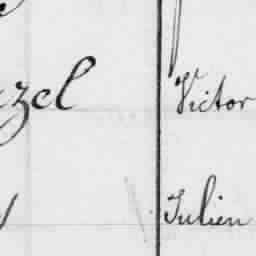 zel Victor
Julien